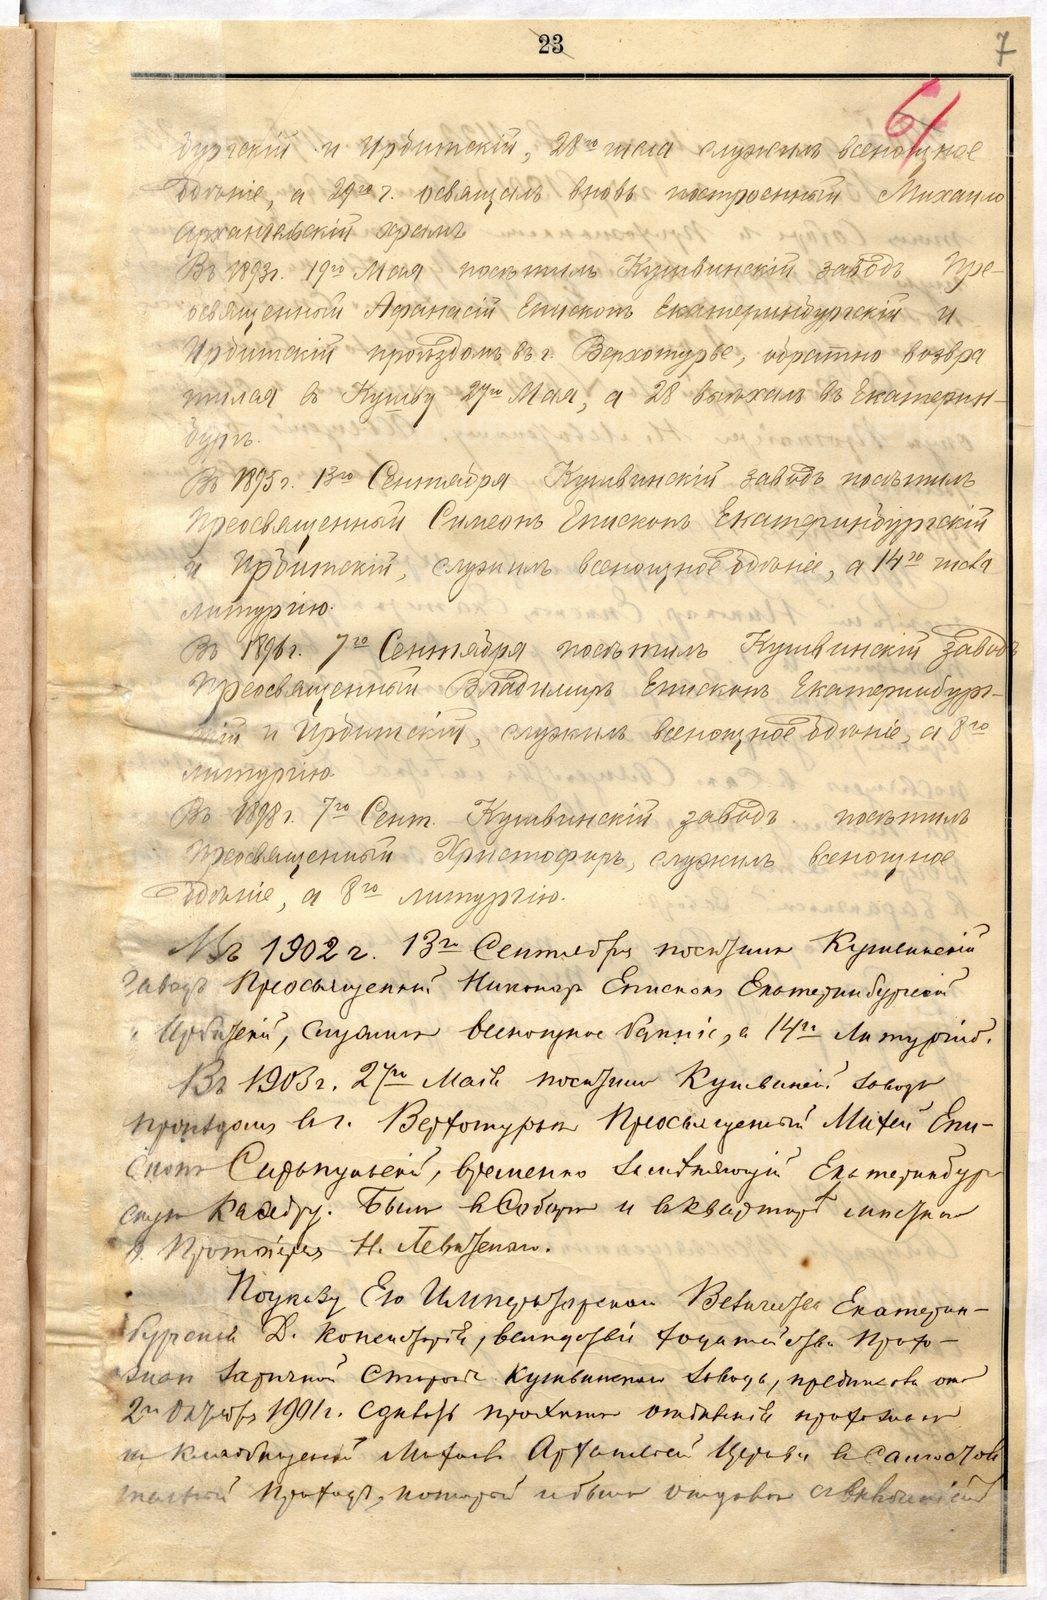 23
7
61
бургскій и Ирбитскій, 28го числа служилъ всенощное
бдѣніе, а 29го г. освящалъ вновь построенный Михаило
Архангельскій храмъ
Въ 1893г. 19го Мая посѣтилъ Кушвинскій заводъ Пре-
освященный Афанасій Епископъ Екатеринбургскій и
Ирбитскій проѣздомъ въ г. Верхотурье, обратно возвра
тился въ Кушву 27го Мая, а 28 выѣхалъ въ Екатерин-
бургъ.
Въ 1895г. 13го Сентября Кушвинскій заводъ посѣтилъ
Преосвященный Симеонъ Епископъ Екатеринбургскій
и Ирбитскій, служилъ всенощное бдѣніе, а 14го числа
литургію.
Въ 1896г. 7го Сентября посѣтилъ Кушвинскій заводъ
Преосвященный Владимиръ Епископъ Екатеринбург-
скій и Ирбитскій, служилъ всенощное бдѣніе, а 8го
литургію
Въ 1898г. 7го Сент. Кушвинскій заводъ посѣтилъ
Преосвященный Христофоръ, служилъ всенощное
бдѣніе, а 8го литургію.
Въ 1902 г. 13го Сентября посѣтилъ Кушвинскій
заводъ Преосвященный Никаноръ Епископъ Екатеринбургскій
и Ирбитскій, служилъ всенощное бдѣніе, а 14го Литургію.
Въ 1903 г. 27го Мая посѣтилъ Кушвинскій заводъ
проѣздомъ въ г. Верхотурье Преосвященный Михей Епи-
скопъ Сарапульскій, временно замѣняющій Екатеринбург
скую Каѳедру. Былъ въ Соборѣ и въ квартирѣ
Протоіерея Н.
По указу Его Императорскаго Величества Екатерин-
бургской Д. Консисторіи, вслѣдствіе ходатайства Прихо-
жан Заречной Стороны Кушвинскаго Завода, предписано отъ
2го Октября 1901г. сдѣлать прихожан
къ кладбищенской Михаило Архангельской Церкви въ самостоя
тельный Приходъ, который и былъ